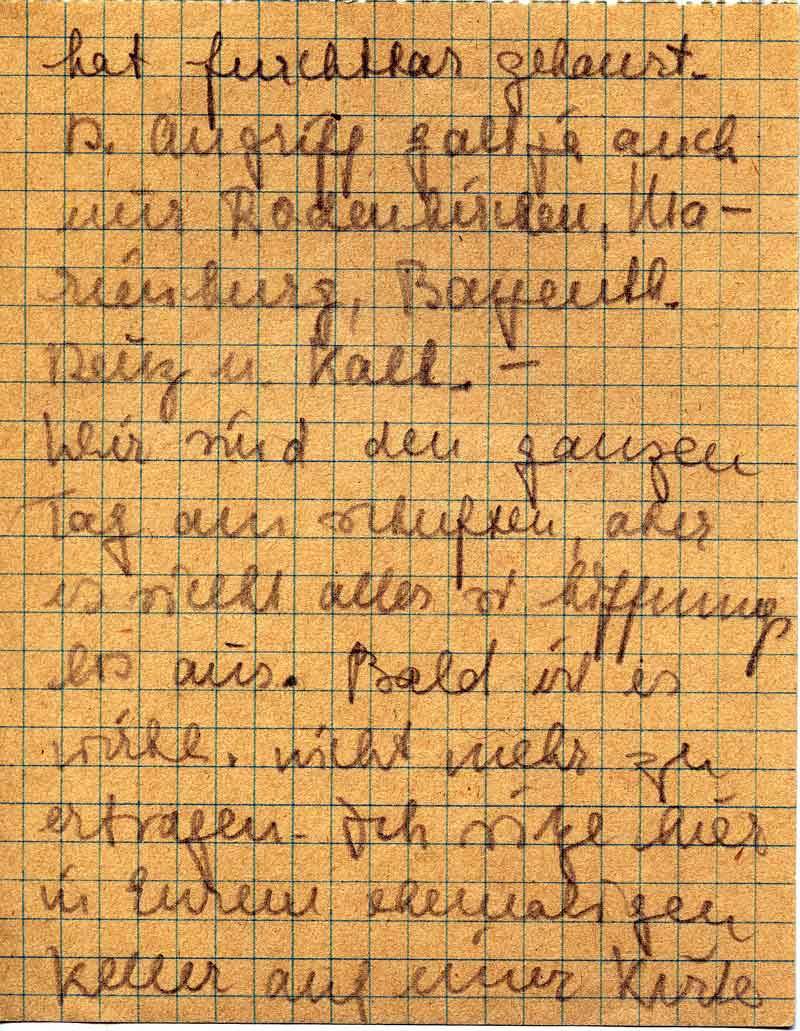 hat furchtbar gehaust.
D. Angriff galt ja auch
nur Rodenkirchen, Ma-
rienburg, Bayenth.
Deutz u. Kalk. –
Wir sind den ganzen
Tag am schuften, aber
es sieht alles so hoffnungs
los aus. Bald ist es
wirkl. nicht mehr zu
ertragen. Ich sitze hier
in Eurem ehemaligen
Keller auf einer Kiste